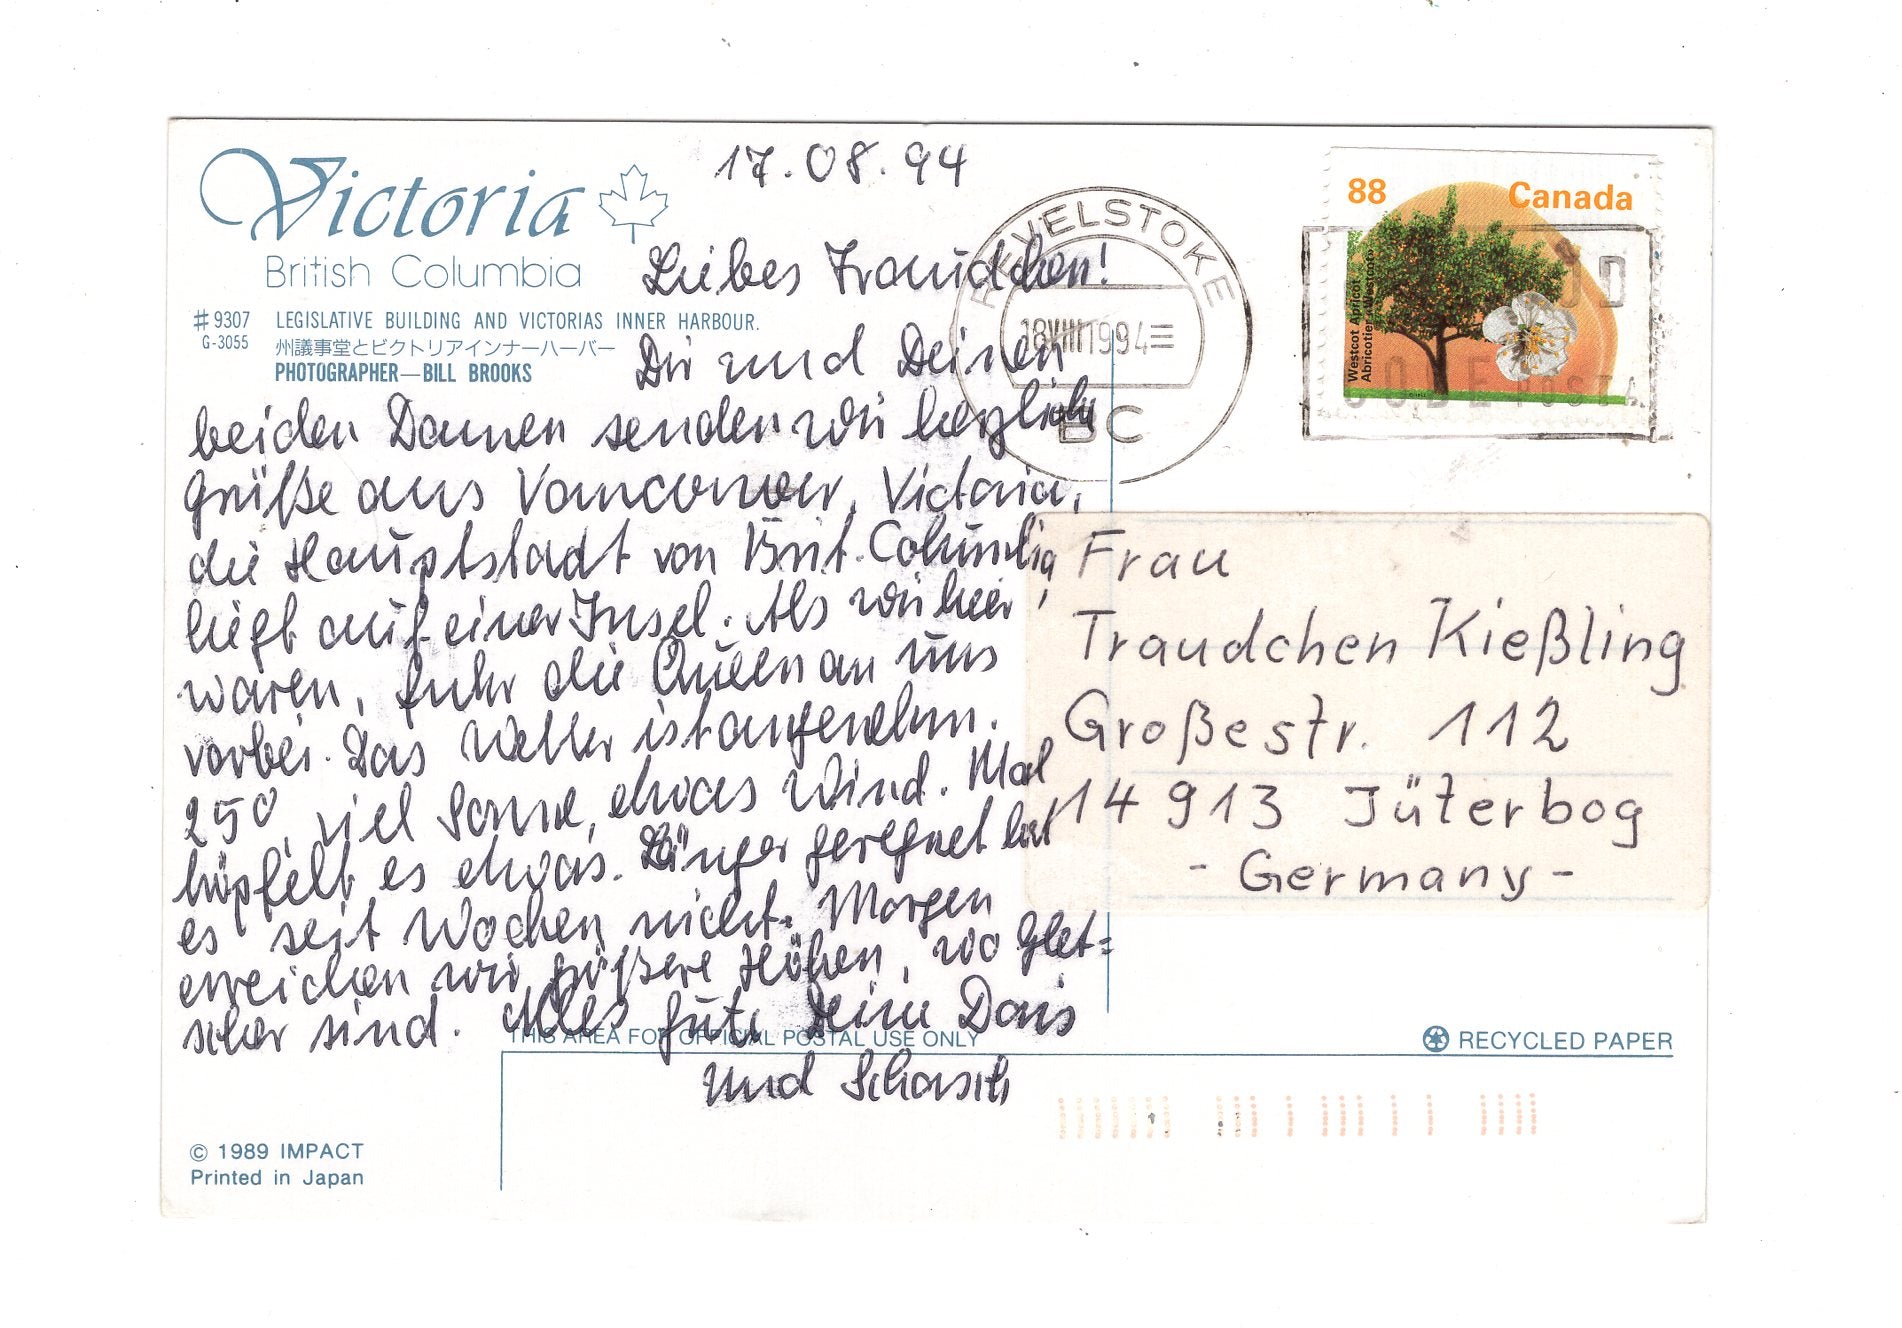 Victoria
British Columbia
#9307 LEGISLATIVE BUILDING AND VICTORIAS INNER HARBOUR.
G-3055 州議事堂とビクトリアインナーハーバー
PHOTOGRAPHER—BILL BROOKS
17.08.94
Liebes Traudchen!
Dir und Deinen
beiden Damen senden wir herzliche
Grüße aus Vancouver, Victoria,
die Hauptstadt von Brit. Columbia,
liegt auf einer Insel. Als wir hier
waren, fuhr die Queen an uns
vorbei. Das Wetter ist angenehm.
25°, viel Sonne, etwas Wind. Mal
tröpfelt es etwas. Länger geregnet hat
es seit Wochen nicht. Morgen
erreichen wir größere Höhen, wo Glet=
scher sind. Alles gute Deine Doris
und
REVELSTOKE
18 VIII 1994
BC
88 Canada
Westcot Apricot
Abricotier «Westcot»
CODE POSTAL
Frau
Traudchen Kießling
Großestr. 112
14913 Jüterbog
- Germany -
THIS AREA FOR OFFICIAL POSTAL USE ONLY
RECYCLED PAPER
© 1989 IMPACT
Printed in Japan